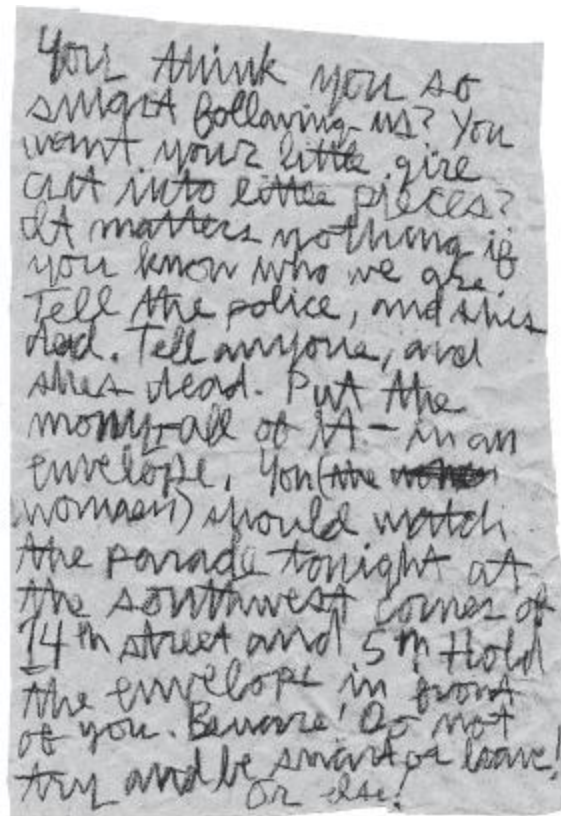 You think you so
smart following us? You
want your little gire
cut into little pieces?
It matters nothing if
you know who we are.
Tell the police, and shes
dead. Tell anyone, and
shes dead. Put the
mony-all of it - in an
envelope. You (the
woman) should watch
the parade tonight at
the southwest corner of
14th street and 5th Hold
the envelope in front
of you. Beware! Do not
try and be smart or leave!
Or else!